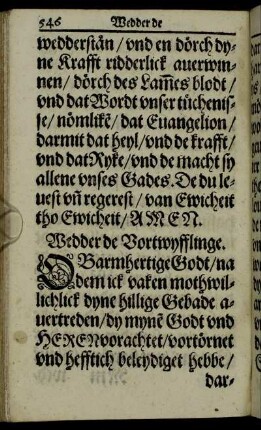 546 Wedder de
wedderstān / vnd en dörch dy-
ne Krafft ridderlick auerwin-
nen / dörch des Lam̄es blodt /
vnd dat Wordt vnser tüchenis-
se / nömlikē / dat Euangelion /
darmit dat heyl / vnd de krafft /
vnd dat Ryke / vnd de macht sy
allene vnses Gades. De du le-
uest vn̄ regerest / van Ewicheit
tho Ewicheit / AMEN.
Wedder de Vortwyfflinge.
O Barmhertige Godt / na
dem ick vaken mothwil-
lichlick dyne hillige Gebade a-
uertreden / dy mynē Godt vnd
HEREN vorachtet / vortörnet
vnd hefftich beleydiget hebbe /
dar-